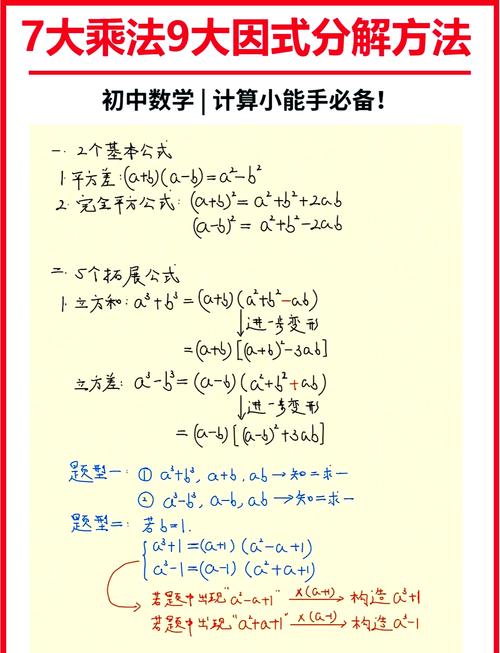 7大乘法9大因式分解方法
初中数学 | 计算小能手必备！
一. 2个基本公式
1.平方差:(a+b)(a-b)=a²-b²
2.完全平方公式:(a+b)²=a²+b²+2ab
(a-b)²=a²+b²-2ab
二. 5个拓展公式
1.立方和:a³+b³=(a+b)(a²+b²-ab)
↓进一步变形
=(a+b)[(a+b)²-3ab]
立方差:a³-b³=(a-b)(a²+b²+ab)
↓进一步变形
=(a-b)[(a-b)²+3ab]
题型一: ① a³+b³, a+b, ab→知二求一
② a³-b³, a-b, ab→知二求一
题型二: 若b=1.
a³+1=(a+1)(a²-a+1)
a³-1=(a-1)(a²+a+1)
若题中出现"a²-a+1" ×(a+1)→ 构造a³+1
若题中出现"a²+a+1" ×(a-1)→ 构造a³-1